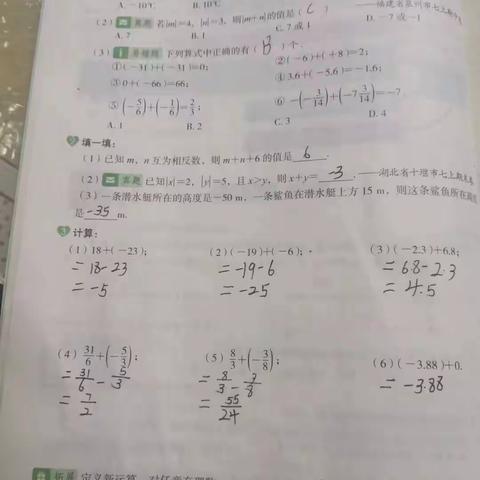 A. -10℃ B. 10℃
(2) 真题 若|m|=4, |n|=3, 则|m+n|的值是( C ) ——福建省泉州市七上期中
A. 7 B. 1 C. 7或1 D. -7或-1
(3) 易错题 下列算式中正确的有( B )个.
①(-31)+(-31)=0; ②(-6)+(+8)=2;
③0+(-66)=66; ④3.6+(-5.6)=-1.6;
⑤(-5/6)+(-1/6)=2/3; ⑥-(-3/14)+(-7 3/14)=-7
A. 1 B. 2 C. 3 D. 4
2 填一填:
(1)已知m, n互为相反数, 则m+n+6的值是 6 .
(2) 真题 已知|x|=2, |y|=5, 且x>y, 则x+y= -3 . ——湖北省十堰市七上期末
(3)一条潜水艇所在的高度是-50 m, 一条鲨鱼在潜水艇上方15 m, 则这条鲨鱼所在高度
是 -35 m.
3 计算:
(1)18+(-23); (2)(-19)+(-6); (3)(-2.3)+6.8;
=18-23 =-19-6 =6.8-2.3
=-5 =-25 =4.5
(4)31/6+(-5/3); (5)8/3+(-3/8); (6)(-3.88)+0.
=31/6-5/3 =8/3-3/8 =-3.88
=7/2 =55/24
拓展 定义新运算